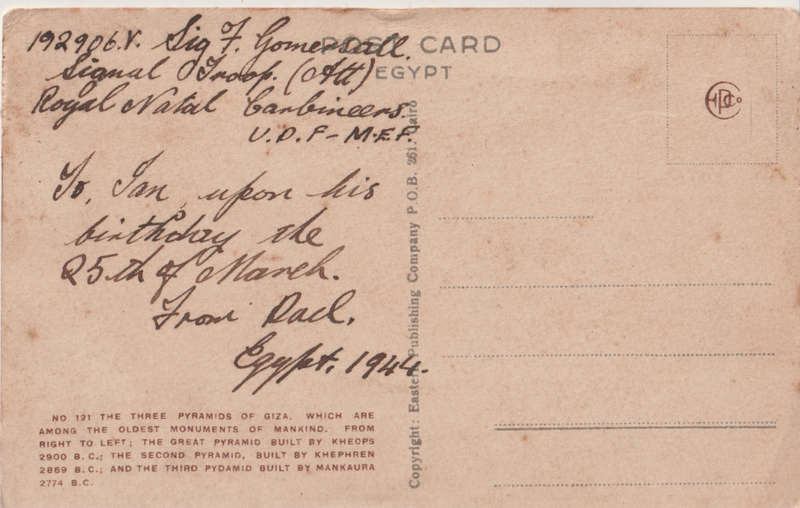 POST CARD
EGYPT
192906.V. Sig F. Gomersall.
Signal Troop. (Att)
Royal Natal Carbineers.
U.D.F - M.E.F.
To, Ian, upon his
birthday the
25th of March.
From Dad.
Egypt. 1944.
NO 191 THE THREE PYRAMIDS OF GIZA. WHICH ARE
AMONG THE OLDEST MONUMENTS OF MANKIND. FROM
RIGHT TO LEFT; THE GREAT PYRAMID BUILT BY KHEOPS
2900 B.C.; THE SECOND PYRAMID, BUILT BY KHEPHREN
2869 B.C.; AND THE THIRD PYDAMID BUILT BY MANKAURA
2774 B.C.
Copyright: Eastern Publishing Company P.O.B. 261. Cairo